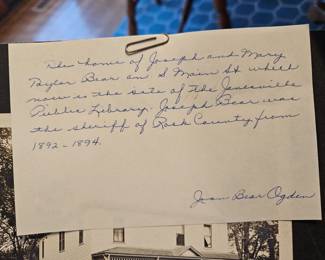 The home of Joseph and Mary
Taylor Bear on S Main St which
now is the sate of the Janesville
Public Library. Joseph Bear was
the sheriff of Rock County from
1892-1894.
Joan Bear Ogden